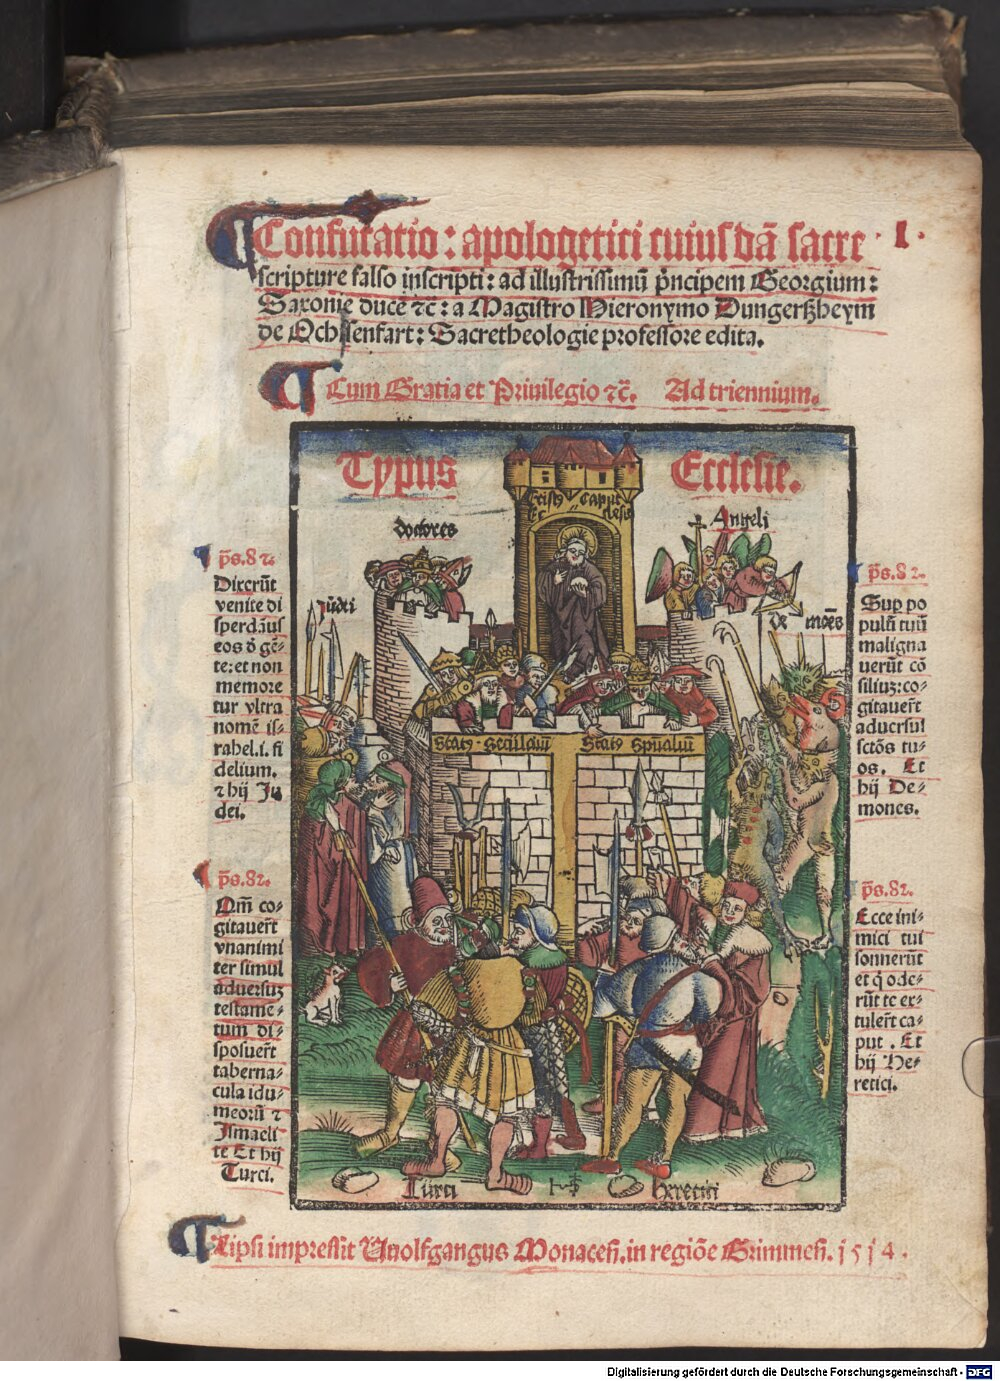 Confutatio: apologetici cuiusdā sacre · I ·
scripture falso inscripti: ad illustrissimū p̄ncipem Georgium:
Saxonie ducē ⁊c̄: a Magistro Hieronymo Dungerszheym
de Ochsenfart: Sacretheologie professore edita.
Cum Gratia et Priuilegio ⁊c̄. Ad triennium.
Typus Ecclesie.
Cristꝰ Caput
Ecclesie
doctores
Angeli
Judei
demōes
Statꝰ Seculariū Statꝰ Spūaliū
Turci
heretici
p̄s.82.
Dixerūt
venite di
sperdāus
eos ō gē-
te: et non
memore
tur vltra
nomē is-
rahel.i. fi
delium.
⁊ hij Ju
dei.
p̄s.82.
Qm̄ co-
gitauer̄t
vnanimi
ter simul
aduersuz
testame-
tum di-
sposuer̄t
taberna-
cula idu-
meorū ⁊
Ismaeli
te Et hij
Turci.
p̄s.82.
Sup po
pulū tuū
maligna
uerūt cō
siliuz: co-
gitauer̄t
aduersus
sctōs tu-
os. Et
hij De-
mones.
p̄s.82.
Ecce ini-
mici tui
sonnerūt
et q̄ ode-
rūt te ex-
tuler̄t ca-
put. Et
hij He-
retici.
Lipsi impressit Vuolfgangus Monaceñ. in regiōe Grimmeñ. 1514.
Digitalisierung gefördert durch die Deutsche Forschungsgemeinschaft - DFG